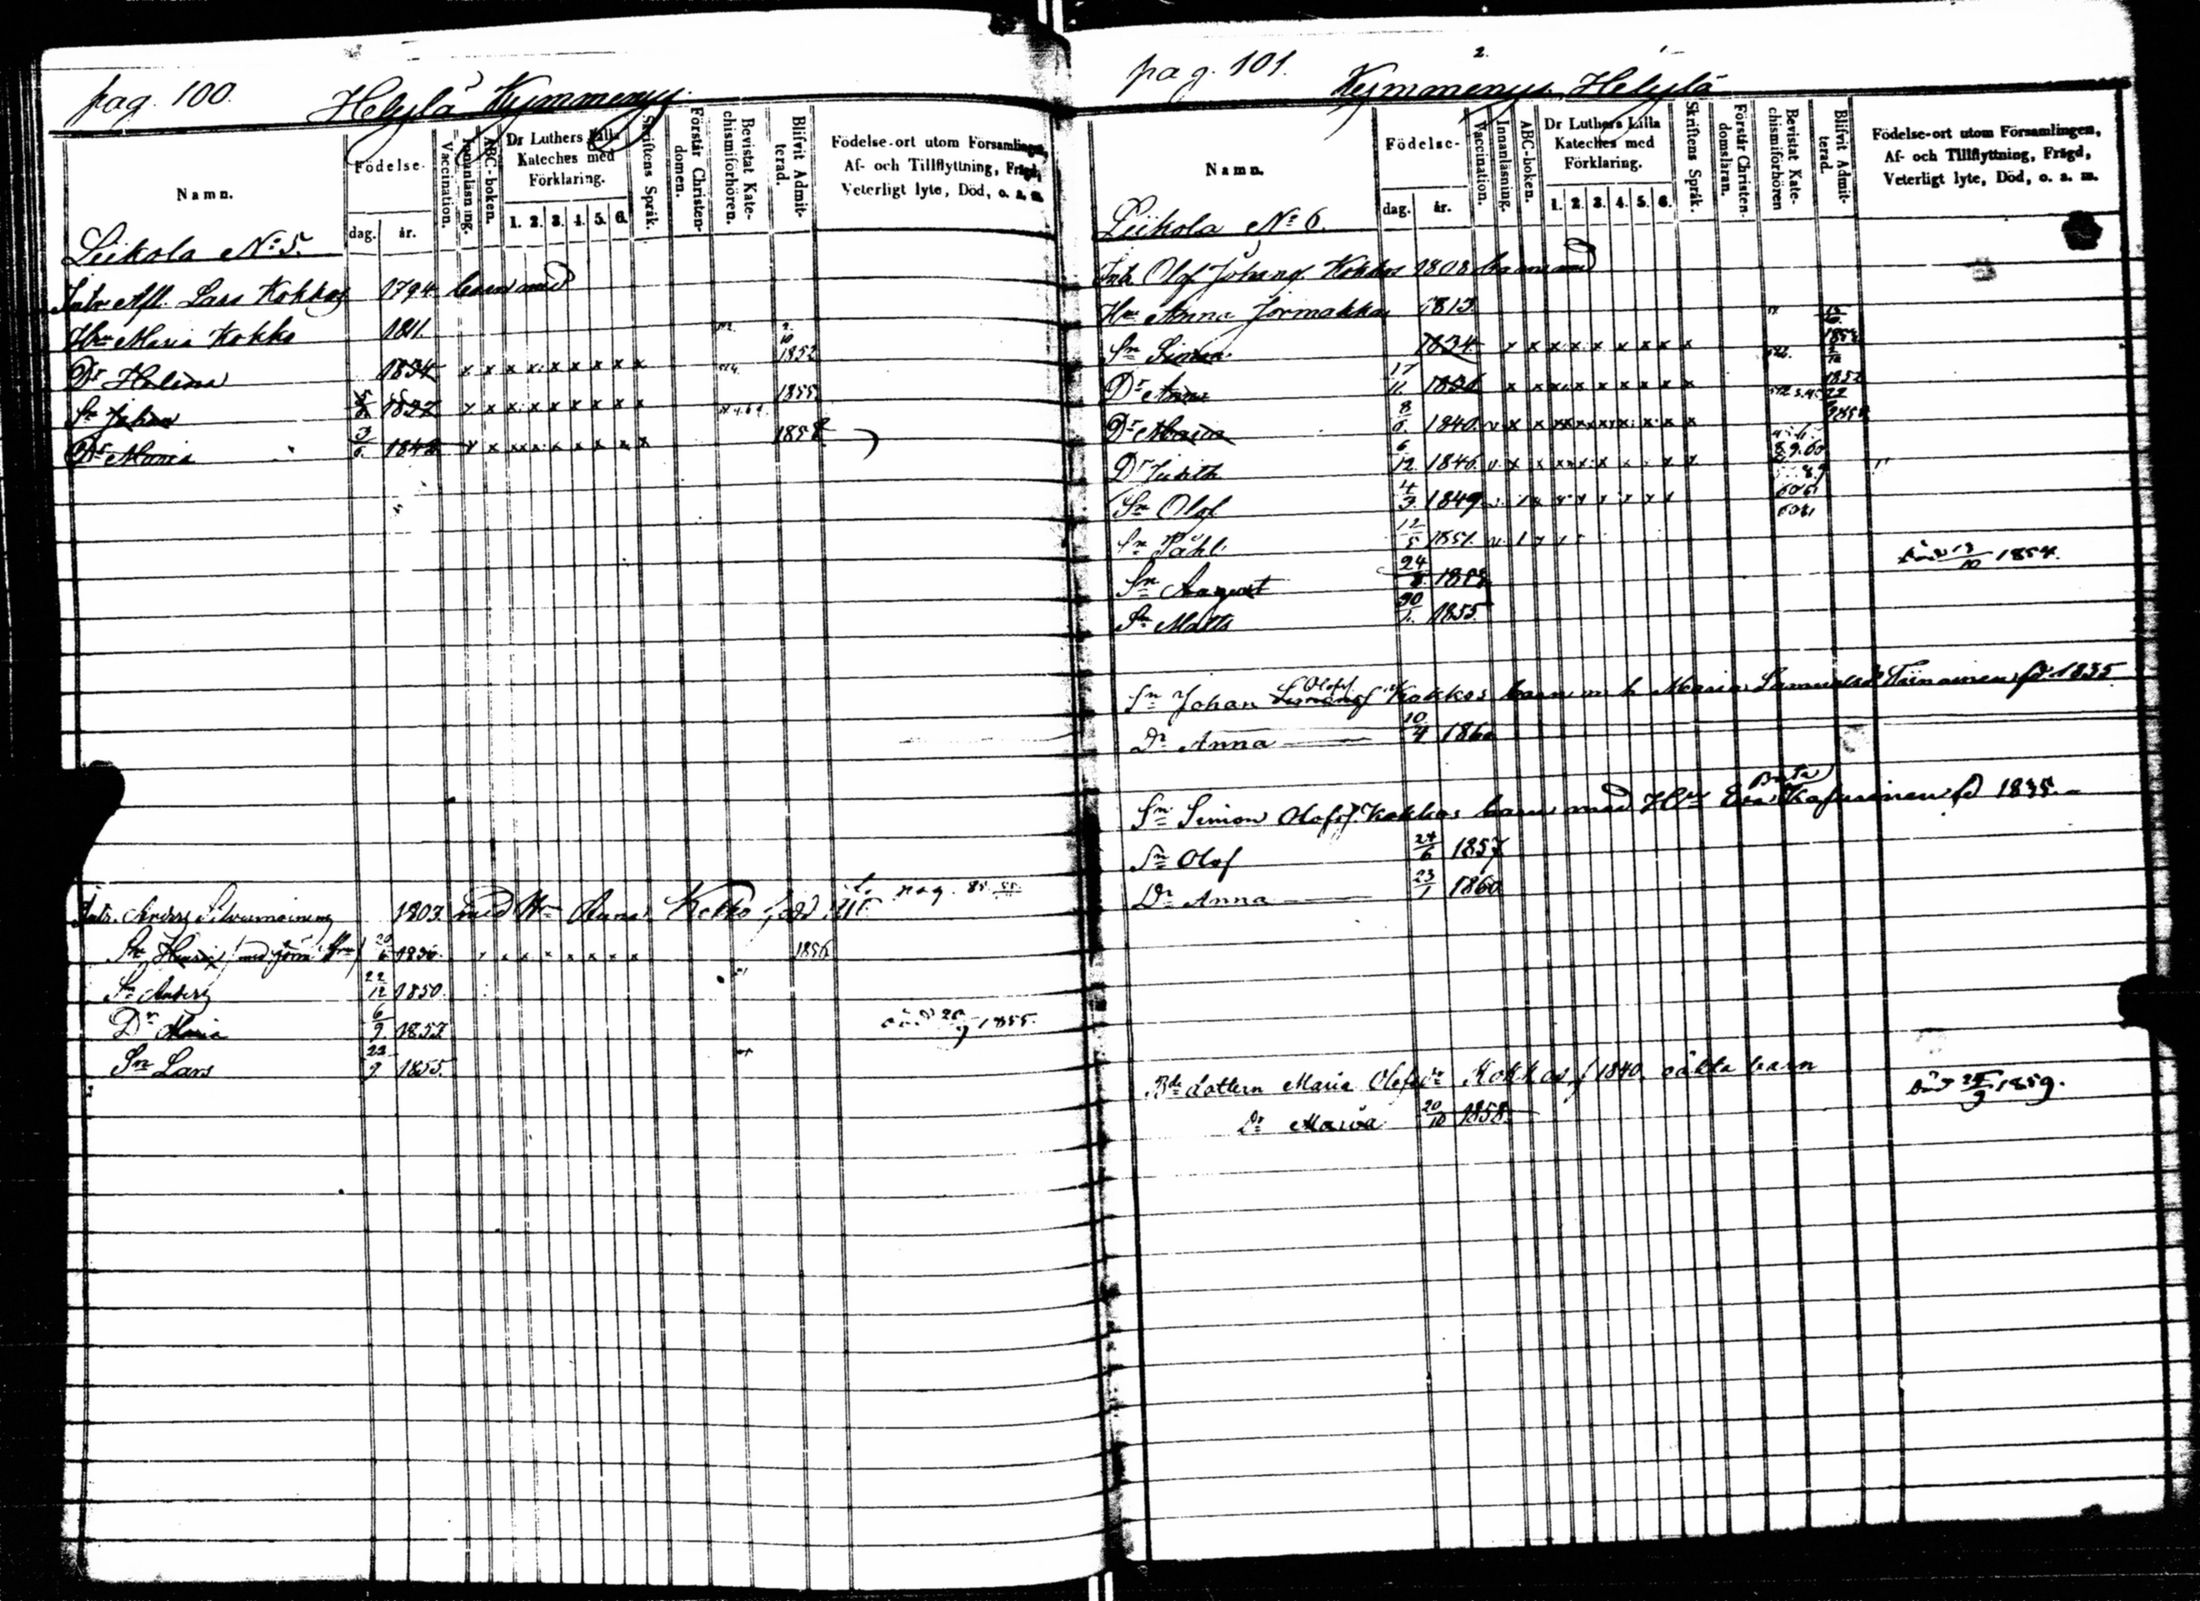 pag. 100.
Helylä Kymmenys.
Namn.
Födelse-
dag. år.
Vaccination.
Innanläsning.
ABC-boken.
Dr Luthers Lilla Kateches med Förklaring.
1. 2. 3. 4. 5. 6.
Skriftens Språk.
Förstår Christendomen.
Bevistat Katechismiförhören.
Blifvit Admitterad.
Födelse-ort utom Församlingen,
Af- och Tillflyttning, Frägd,
Veterligt lyte, Död, o. s. m.
Leikola No 5.
Lars Kokkos 1794 barn med
Hu Maria Kokko 1811.
Dr Helena 1834 x x x x x x x x x 1852
Sn Johan 1837 x x x x x x x x 1855
Dr Maria 3/6 1842 x x x x x x x x 1858
Inh. Anders Silvennoinen 1803 med Hu Anna Kokko född
Sn Henric 1836 x x x x x x x 1856
Sn Anders 22/12 1850.
Dr Maria 6/9 1852 död 20/9 1855.
Sn Lars 23/9 1855.
pag. 101.
2.
Kymmenys Helylä
Namn.
Födelse-
dag. år.
Vaccination.
Innanläsning.
ABC-boken.
Dr Luthers Lilla Kateches med Förklaring.
1. 2. 3. 4. 5. 6.
Skriftens Språk.
Förstår Christendomsläran.
Bevistat Katechismiförhören
Blifvit Admitterad.
Födelse-ort utom Församlingen,
Af- och Tillflyttning, Frägd,
Veterligt lyte, Död, o. s. m.
Leikola No 6.
Inh Olof Johansf Kokkos 1808 barn med
Hu Anna Jormakka 1813.
Sn Simon 1834 x x x x x x x x x
Dr Anna 17/11 1836 x x x x x x x x 1852
Dr Maria 8/6 1840 v x x x x x x x x
Dr Judith 6/12 1846 v x x x x x
Sn Olof 4/3 1849
Sn Påhl 12/5 1851
Sn August 24/8 död 13/10 1854.
Sn Matts 30/1 1855.
Sn Johan Olofsf Kokkos barn m. h. Maria Samuelsdr Tiinainen fd 1835
Dr Anna 10/4 1860
Sn Simon Olofsf Kokkos barn med Hu Beata fd 1835.
Sn Olof 24/6 1857
Dr Anna 23/1 1860
Bde dottern Maria Olofsdr Kokkos f 1840. oäkta barn
Dr Maria 20/10 1858 död 25/9 1859.